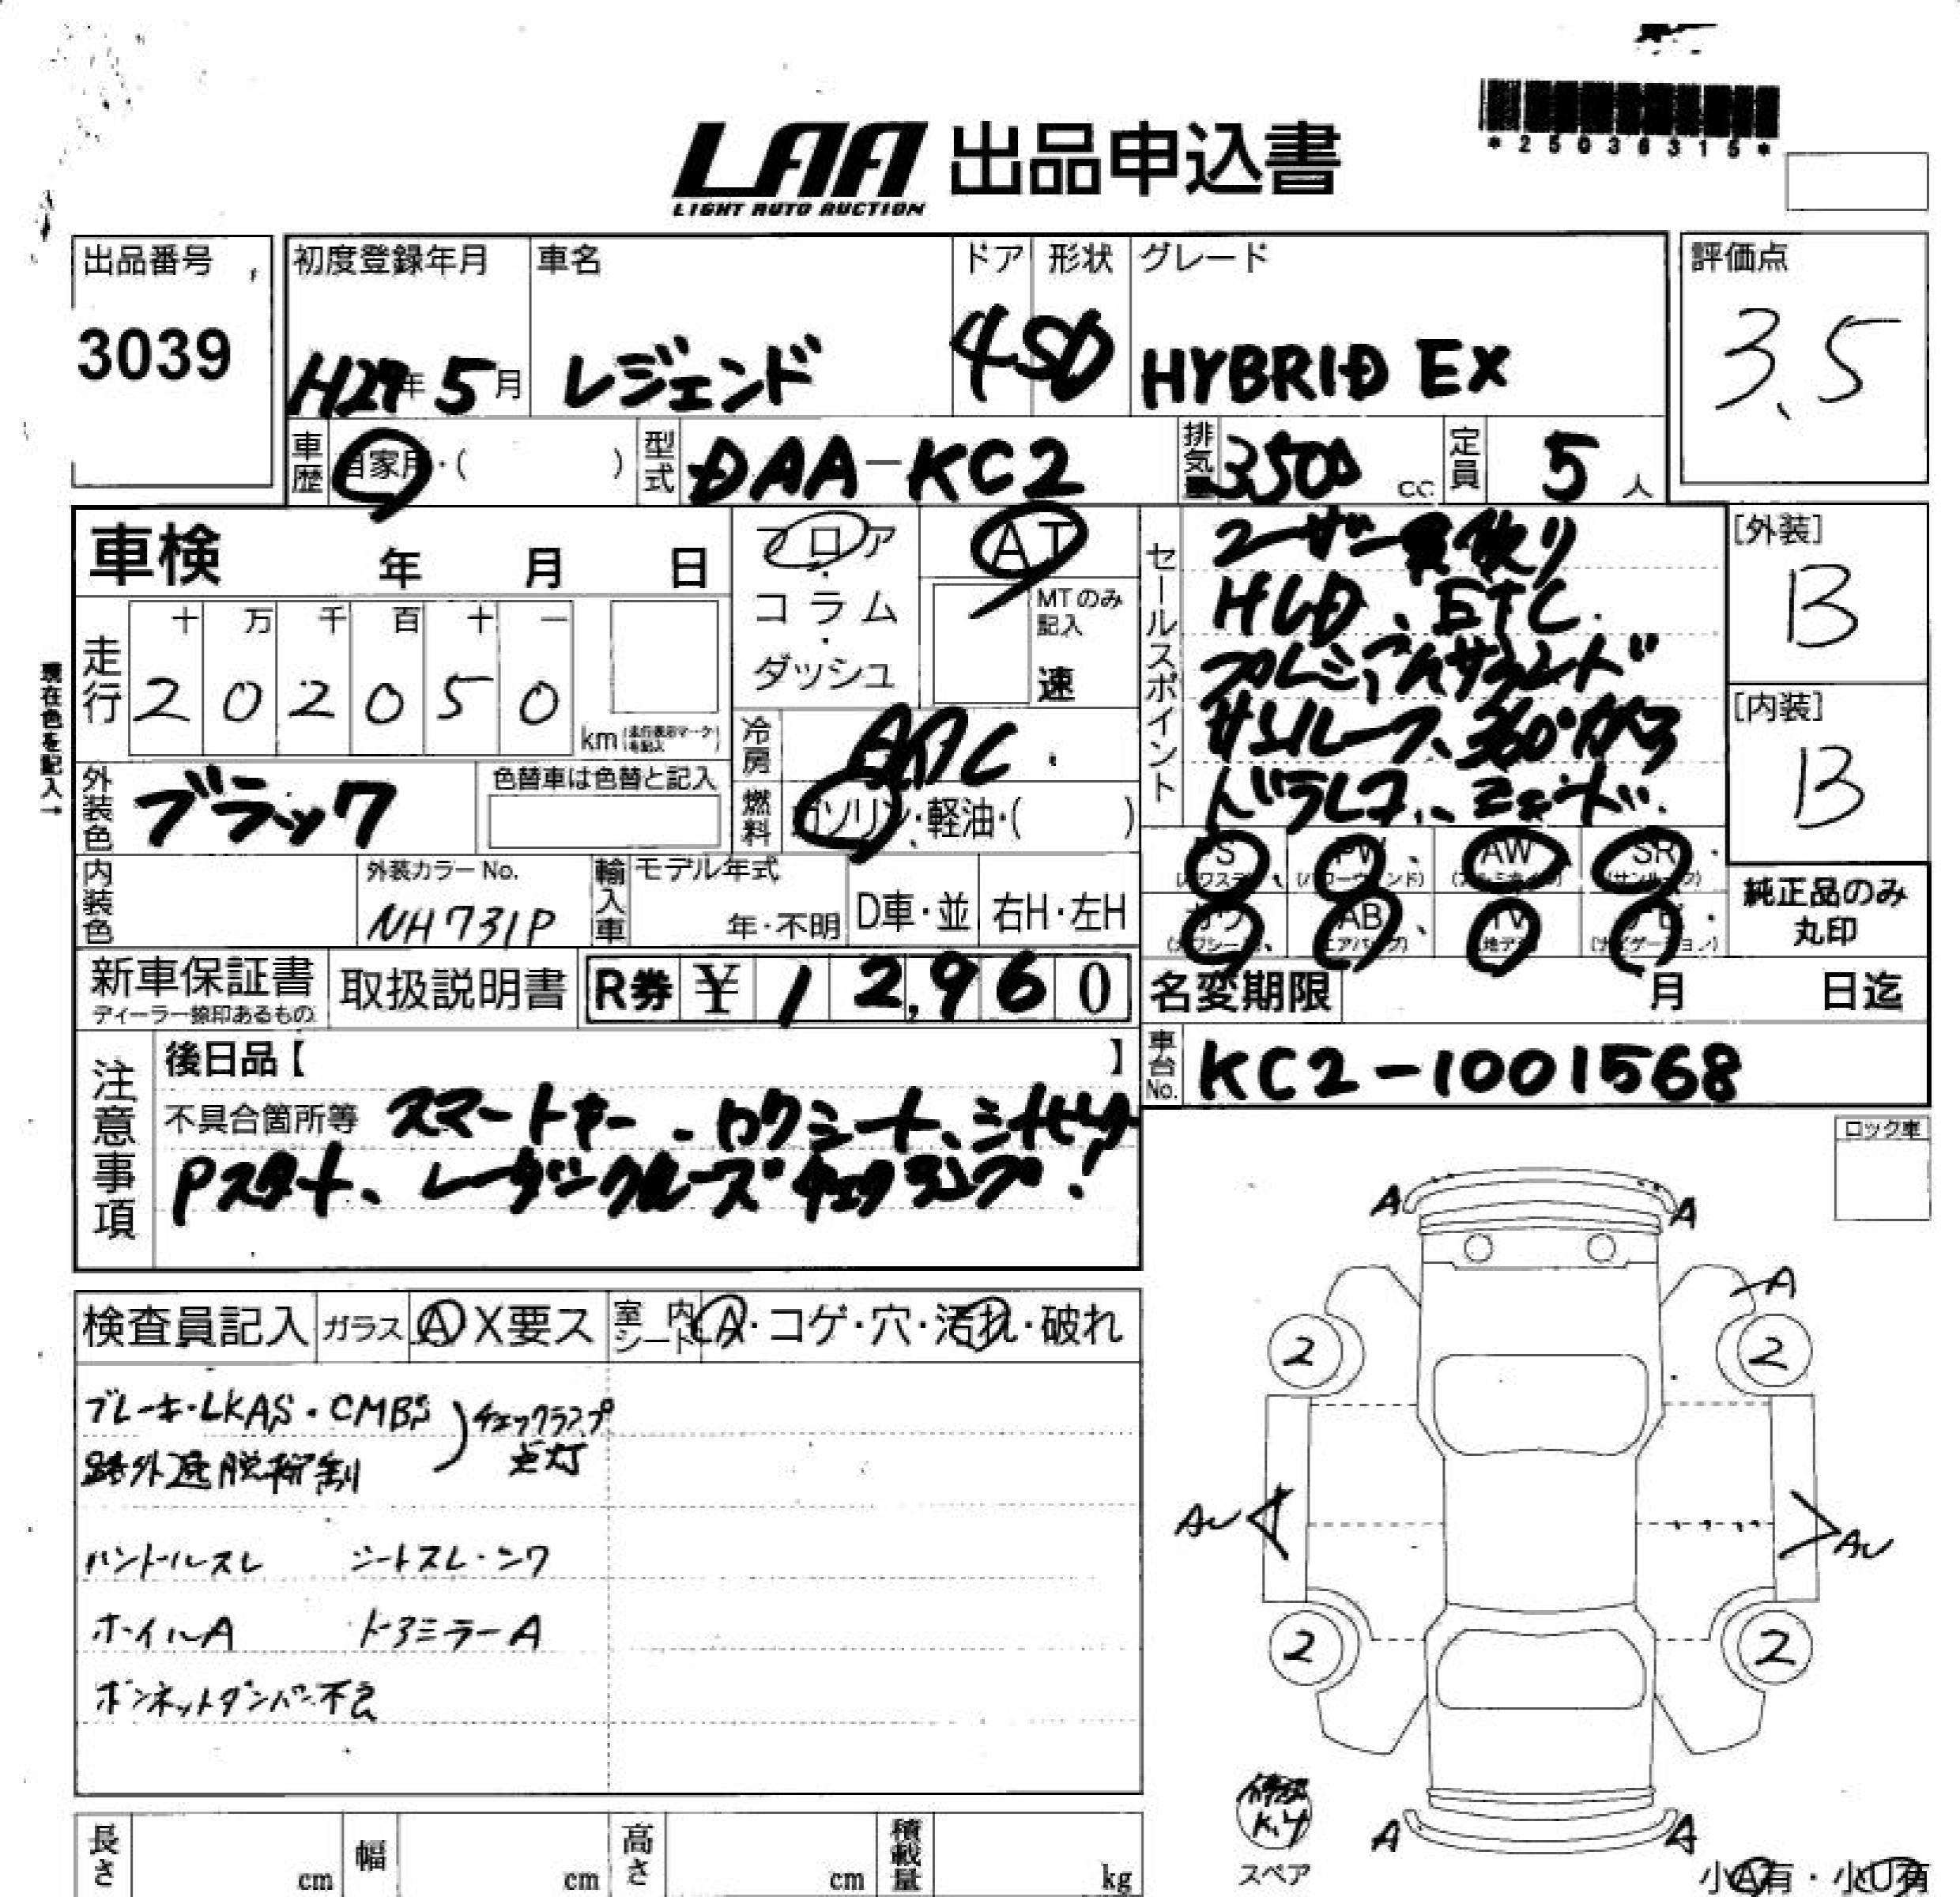 *25036315*
LAA 出品申込書
LIGHT AUTO AUCTION
出品番号
3039
初度登録年月
H27年5月
車名
レジェンド
ドア
4
形状
SD
グレード
HYBRID EX
評価点
3.5
車歴
自家用・( )
型式
DAA-KC2
排気量
3500 cc
定員
5人
車検 年 月 日
フロア・コラム・ダッシュ
AT
MTのみ記入
速
セールスポイント
ユーザー買取り
HLD、ETC.
プレミアムサウンド
サンルーフ、360°カメラ
ドラレコ、
[外装]
B
[内装]
B
現在色を記入→
走行
十 万 千 百 十 一
2 0 2 0 5 0
km
冷房
AAC
外装色
ブラック
色替車は色替と記入
燃料
ガソリン・軽油・( )
内装色
外装カラーNo.
NH731P
輸入車
モデル年式
年・不明
D車・並
右H・左H
PS
(パワステ)
PW
(パワーウィンド)
AW
(アルミホイル)
SR
(サンルーフ)
カワ
(カワシート)
AB
(エアバッグ)
TV
(地デジ)
ナビ
(ナビゲーション)
純正品のみ
丸印
新車保証書
ディーラー捺印あるもの
取扱説明書
R券 ¥ 12,960
名変期限 月 日迄
注意事項
後日品【 】
不具合箇所等 スマートキー
Pスタート、レーダークルーズ チェックランプ!
車台No.
KC2-1001568
ロック車
検査員記入
ガラス
A X要ス
室内シート
A・コゲ・穴・汚れ・破れ
ブレーキ・LKAS・CMBS
路外逸脱抑制
チェックランプ
点灯
ハンドルスレ シートスレ・シワ
ホイルA ドアミラーA
ボンネットダンパー不良
A A
A
2 2
AU AU
2 2
A A
修理
K.y
スペア
小A有・小U有
長さ cm
幅 cm
高さ cm
積載量 kg